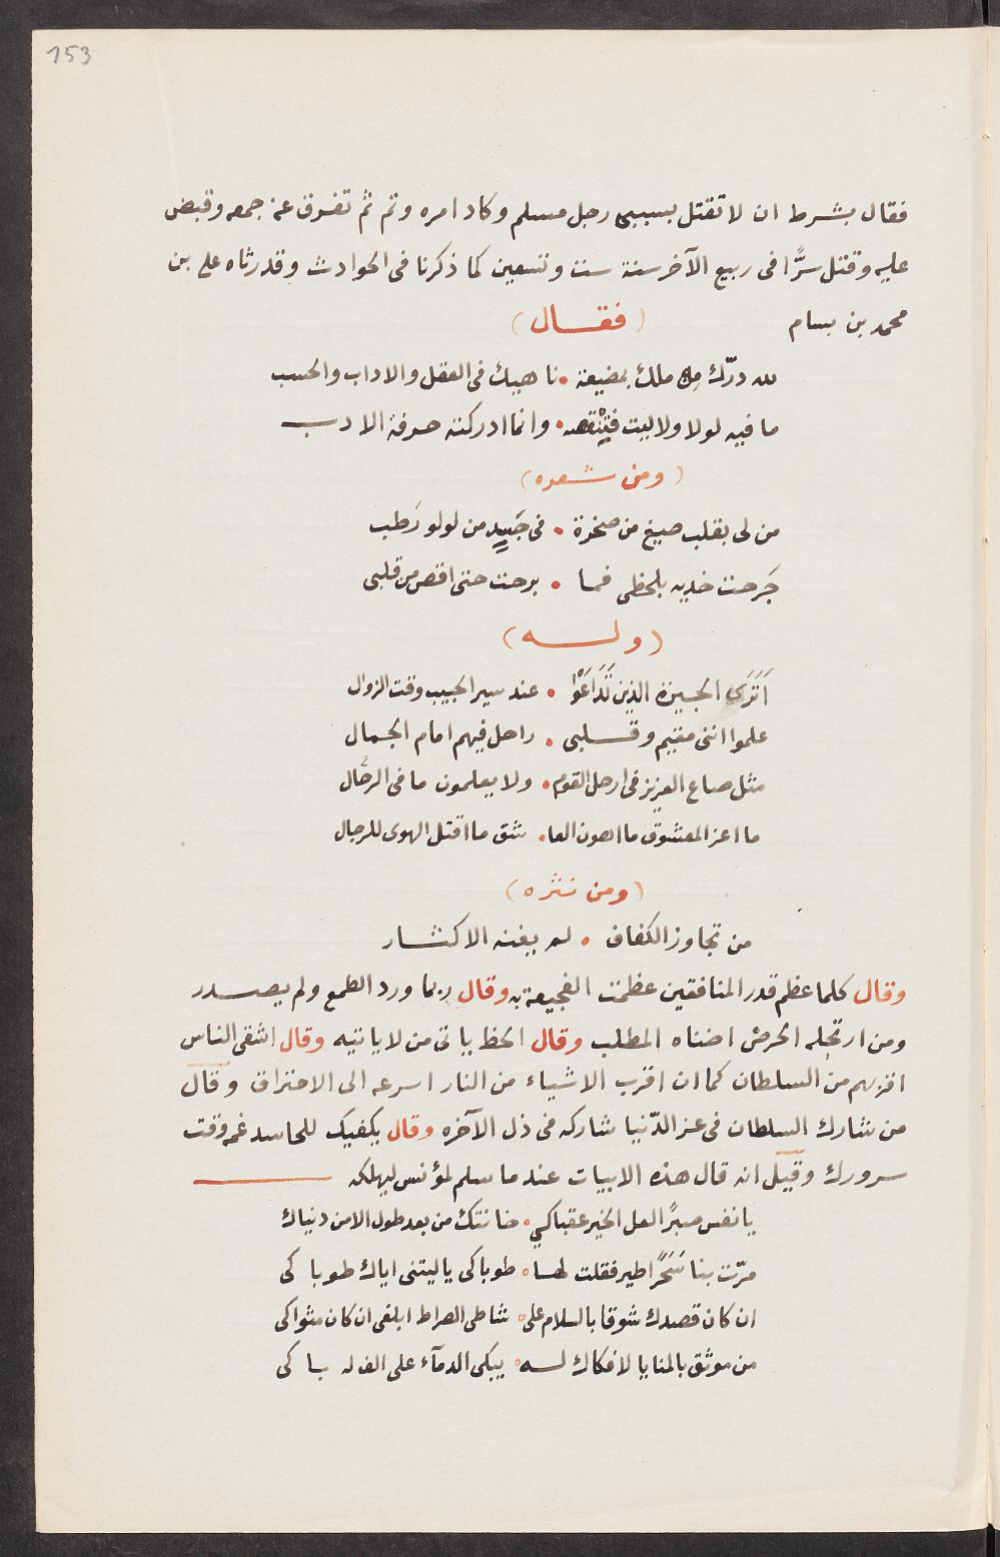 153
فقال بشرط ان لا تقتل بسببى رجل مسلم وكاد امره وتم ثم تفرق عنه جمعه وقبض
عليه وقتل سرًّا فى ربيع الآخر سنة ست وتسعين كما ذكرنا فى الحوادث وقد رثاه على بن
محمد بن بسام (فقال)
لله درّك من ملك بمضيعة • ناهيك فى العقل والاداب والحسب
ما فيه لولا ولا ليت فتنقصه • وانما ادركته حرفة الادب
(ومن شعره)
من لى بقلب صيغ من صخرة • فى جَسدٍ من لولو رَطب
جَرحت خديه بلحظى فما • برحت حتى اقتص من قلبى
(وله)
اَتَرَى الجيرة الذين تَدَاعَوْا • عند سير الحبيب وقت الزوال
علموا اننى مقيم وقلبى • راحل فيهم امام الجمال
مثل صاع العزيز فى ارحل القوم • ولا يعلمون ما فى الرحال
ما اعز المعشوق ما اهون العا • شق ما اقتل الهوى للرجال
(ومن نثره)
من تجاوز الكفاف • لم يغنه الاكثار
وقال كلما عظم قدر المنافقين عظمت الفجيعة به وقال ربما ورد الطمع ولم يصدر
ومن ارتحله الحرص اضناه المطلب وقال الحظ ياتى من لا ياتيه وقال اشقى الناس
اقربهم من السلطان كما ان اقرب الاشياء من النار اسرعه الى الاحتراق وقال
من شارك السلطان فى عز الدّنيا شاركه فى ذل الآخره وقال يكفيك للحاسد غمه وقت
سرورك وقيل انه قال هذه الابيات عند ما سلم لمؤنس ليهلكه
يا نفس صبرًا لعل الخير عقباكي • خانتك من بعد طول الامن دنياك
مرّت بنا سَحَرًا طير فقلت لها • طوباكى يا ليتنى اياك طوباكى
ان كان قصدك شوقا بالسلام على • شاطى الصراط ابلغى ان كان مثواكى
من موثق بالمنايا لا فكاك له • يبكى الدمآء على الف له باكى